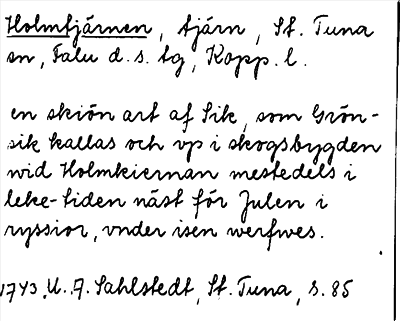 Holmtjärnen, tjärn, St. Tuna
sn, Falu d.s. tg, Kopp. l.
en skiön art af Sik, som Grön-
sik kallas och vp i skogsbygden
wid Holmkiernan mestedels i
leke-tiden näst för Julen i
ryssior, vnder isen werfwes.
1743. U. A. Sahlstedt, St. Tuna, s. 85